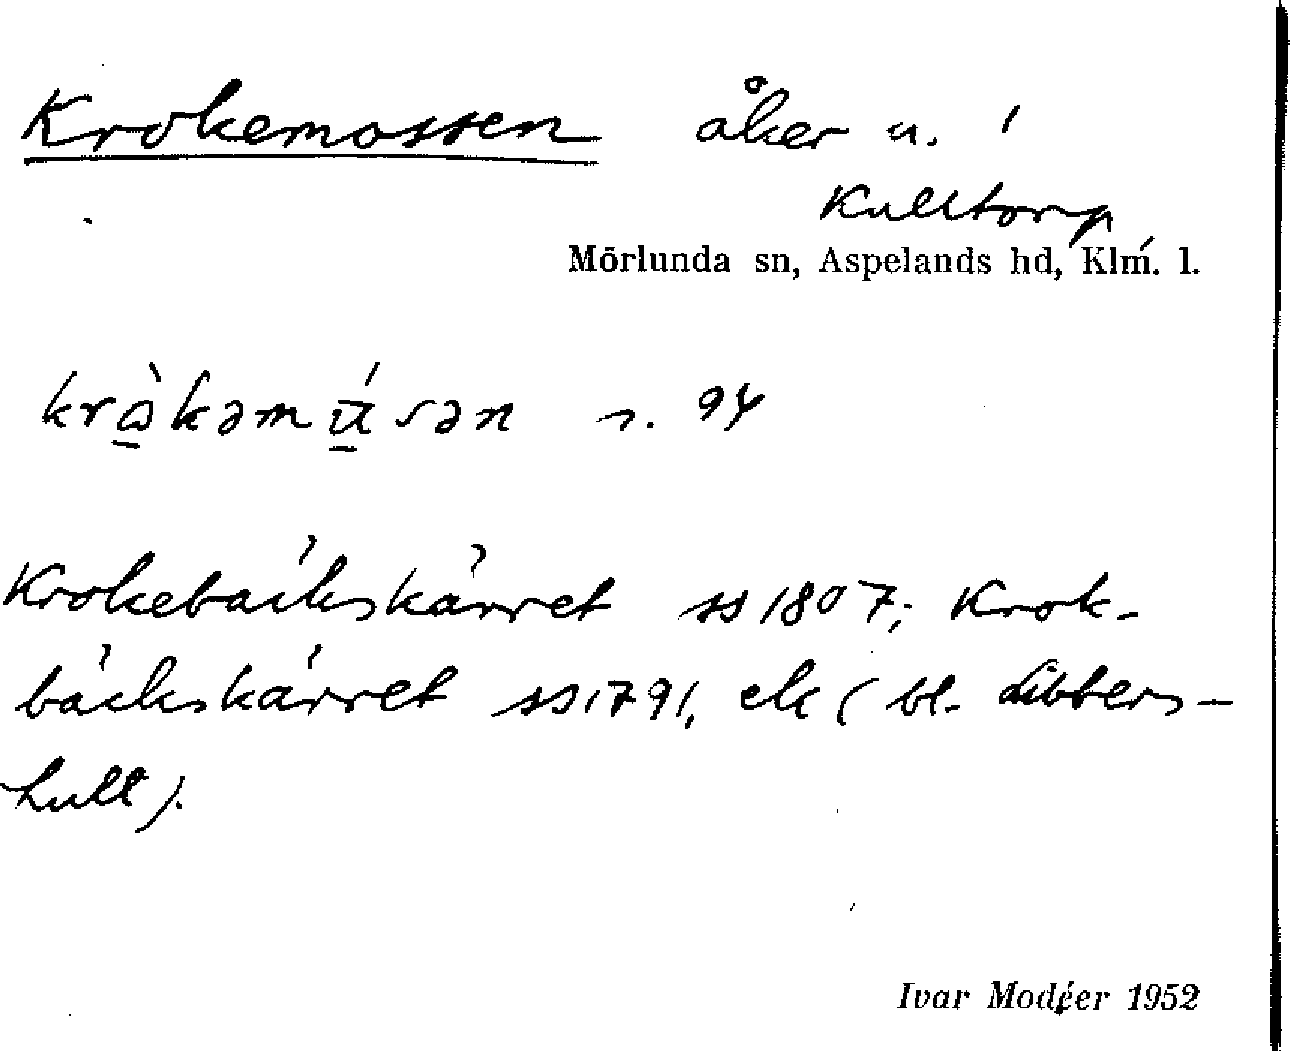 Krokemossen åker u. 1
Kulltorp
Mörlunda sn, Aspelands hd, Klm. l.
krɷ̀kəmúsən s. 94
Krokebäckskärret ss 1807; Krok-
bäckskärret ss 1791, ek (bl. Libbers-
hult).
Ivar Modéer 1952